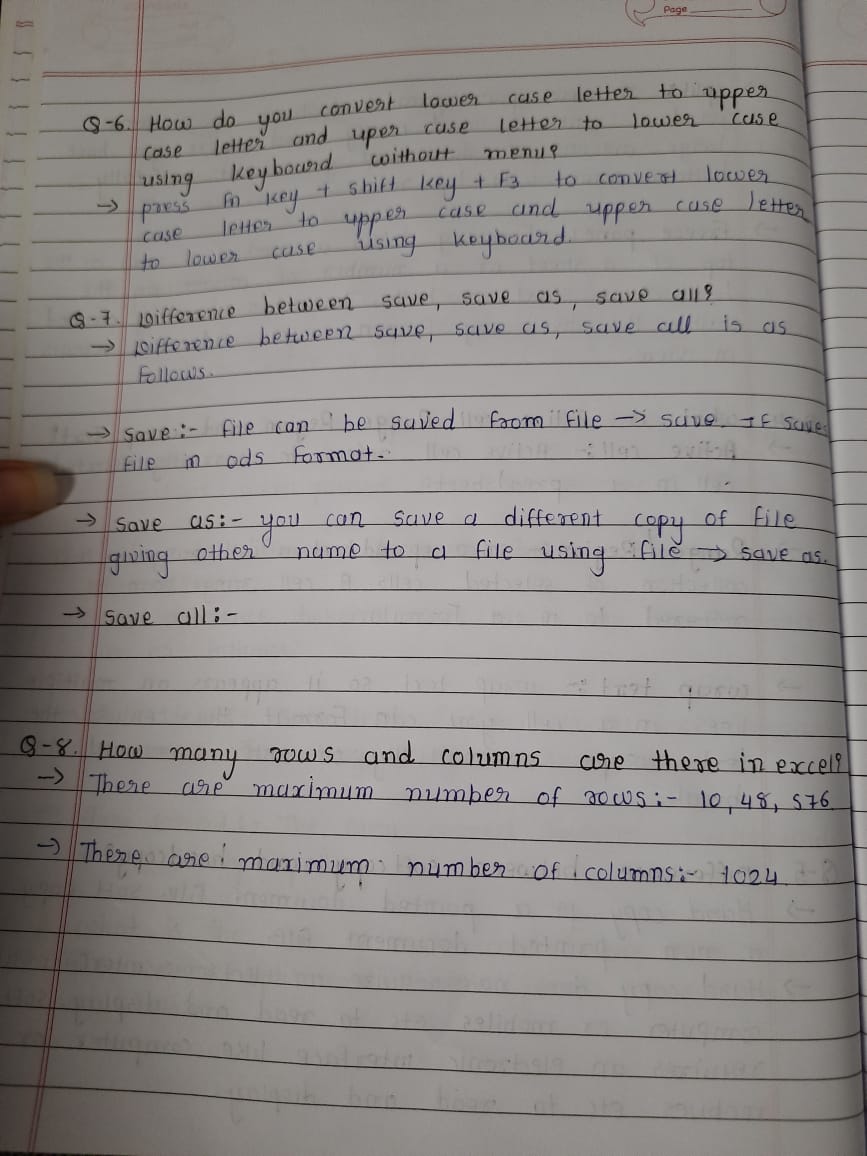 Page
Q-6. How do you convert lower case letter to upper
case letter and uper case letter to lower case
using keyboard without menu?
→ press fn key + shift key + F3 to convert lower
case letter to upper case and upper case letter
to lower case using keyboard.
Q-7. Difference between save, save as, save all?
→ Difference between save, save as, save all is as
follows.
→ save:- file can be saved from file → save. It save
file in ods format.
→ save as:- you can save a different copy of file
giving other name to a file using file → save as.
→ save all:-
Q-8. How many rows and columns are there in excel?
→ There are maximum number of rows:- 10,48,576
→ There are maximum number of columns:- 1024.